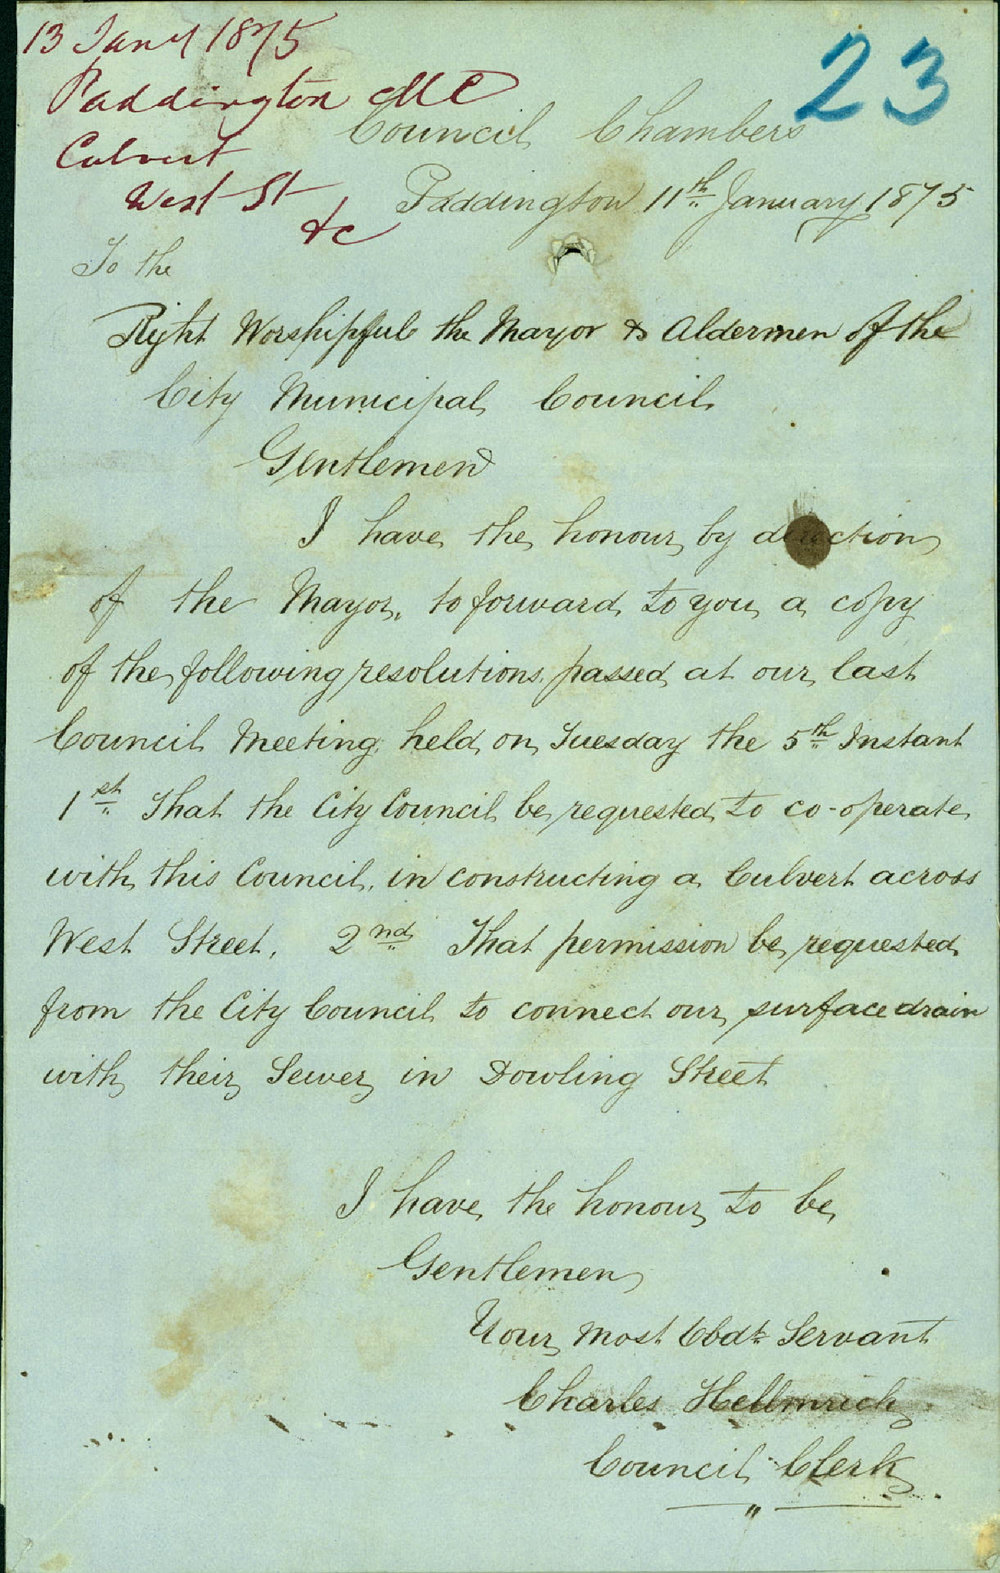 13 Jany 1875
Paddington M C
Culvert
West St
&c
23
Council Chambers
Paddington 11th January 1875
To the
Right Worshipful the Mayor & Aldermen of the
City Municipal Council
Gentlemen
I have the honour by direction
of the Mayor, to forward to you a copy
of the following resolutions passed at our last
Council Meeting held on Tuesday the 5th Instant
1st That the City Council be requested to co-operate
with this Council, in constructing a Culvert across
West Street. 2nd That permission be requested
from the City Council to connect our surface drain
with their Sewer in Dowling Street
I have the honour to be
Gentlemen
Your most Obdt Servant
Charles Hellmrich
Council Clerk